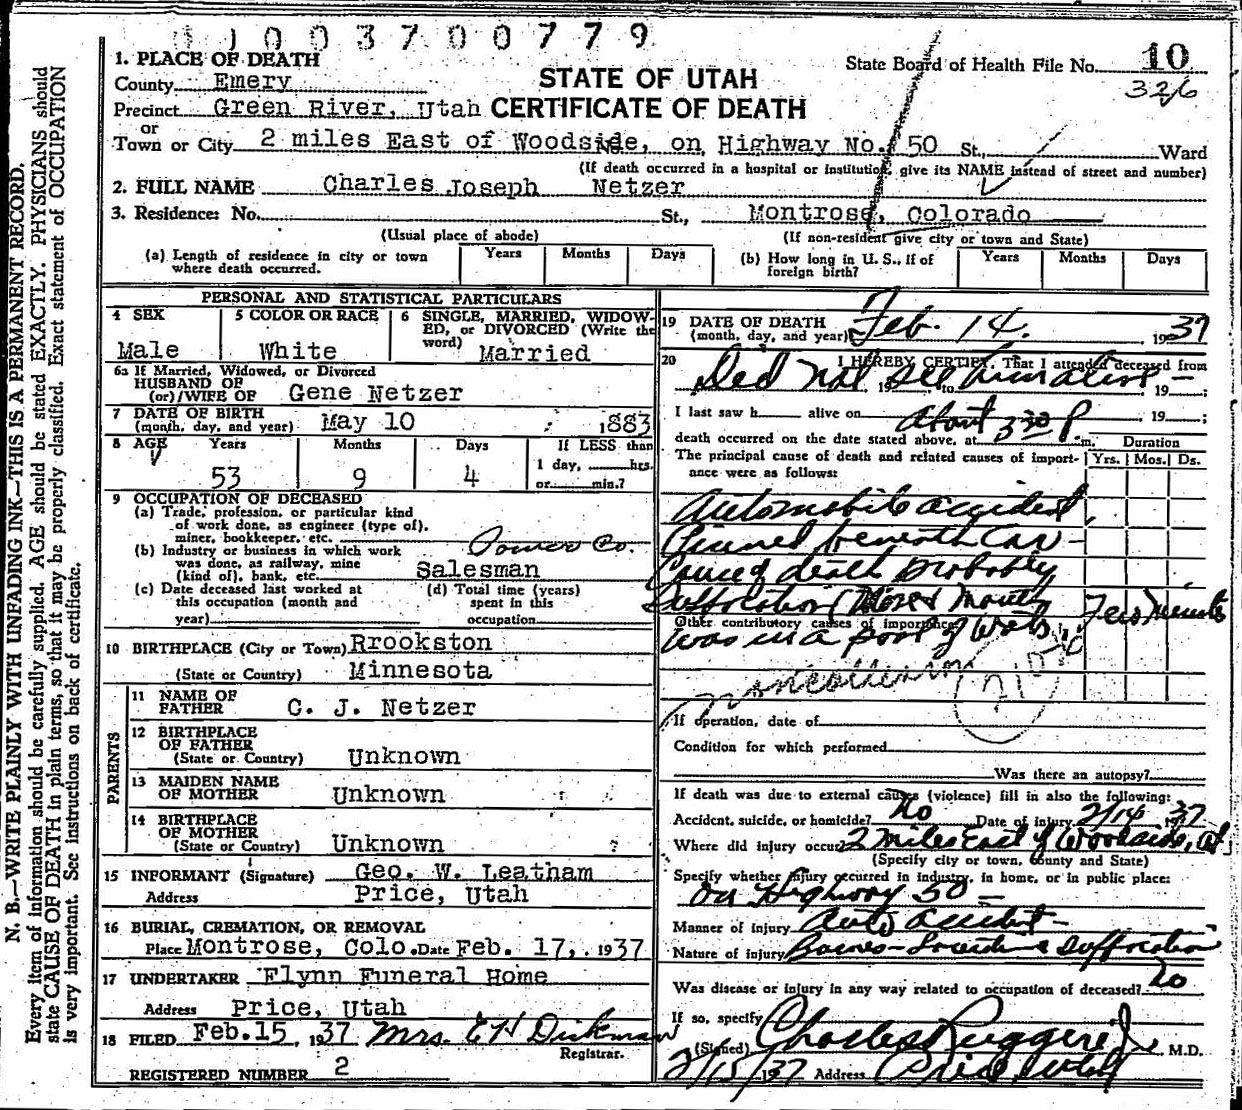 1 1 0 0 3 7 0 0 7 7 9
STATE OF UTAH
CERTIFICATE OF DEATH
State Board of Health File No. 10
326
1. PLACE OF DEATH
County Emery
Precinct Green River, Utah
or
Town or City 2 miles East of Woodside, on Highway No. 50 St., Ward
(If death occurred in a hospital or institution, give its NAME instead of street and number)
2. FULL NAME Charles Joseph Netzer
3. Residence: No. St., Montrose, Colorado
(Usual place of abode) (If non-resident give city or town and State)
(a) Length of residence in city or town where death occurred. Years Months Days
(b) How long in U. S., if of foreign birth? Years Months Days
PERSONAL AND STATISTICAL PARTICULARS
4 SEX Male
5 COLOR OR RACE White
6 SINGLE, MARRIED, WIDOWED, or DIVORCED (Write the word) Married
6a If Married, Widowed, or Divorced
HUSBAND OF
(or)/WIFE OF Gene Netzer
7 DATE OF BIRTH
(month, day, and year) May 10 1883
8 AGE Years Months Days If LESS than
53 9 4 1 day, hrs.
or min.?
9 OCCUPATION OF DECEASED
(a) Trade, profession, or particular kind
of work done, as engineer (type of).
miner, bookkeeper, etc. Power Co.
(b) Industry or business in which work
was done, as railway, mine
(kind of), bank, etc. Salesman
(c) Date deceased last worked at
this occupation (month and
year)
(d) Total time (years)
spent in this
occupation
10 BIRTHPLACE (City or Town) Rrookston
(State or Country) Minnesota
PARENTS
11 NAME OF
FATHER C. J. Netzer
12 BIRTHPLACE
OF FATHER
(State or Country) Unknown
13 MAIDEN NAME
OF MOTHER Unknown
14 BIRTHPLACE
OF MOTHER
(State or Country) Unknown ?
15 INFORMANT (Signature) Geo. W. Leatham
Address Price, Utah
16 BURIAL, CREMATION, OR REMOVAL
Place Montrose, Colo. Date Feb. 17, 1937
17 UNDERTAKER Flynn Funeral Home
Address Price, Utah
18 FILED Feb. 15, 1937 Mrs. E H Dickman
Registrar.
REGISTERED NUMBER 2
19 DATE OF DEATH
(month, day, and year) Feb. 14. 1937
20 I HEREBY CERTIFY, That I attended deceased from
Did not see him alive 19 , to 19 ;
I last saw h alive on 19 ;
death occurred on the date stated above, at About 3 30 P m.
The principal cause of death and related causes of importance were as follows:
Duration
Yrs. Mos. Ds.
Automobile accident,
Pinned beneath car -
Cause of death probably
Suffocation (Nose & Mouth Few Minutes
Other contributory causes of importance
was in a pool of water
noncollision
210 c
If operation, date of
Condition for which performed
Was there an autopsy?
If death was due to external causes (violence) fill in also the following:
Accident, suicide, or homicide? No Date of injury 2/14 1937
Where did injury occur? 2 miles East of Woodside, Ut
(Specify city or town, County and State)
Specify whether injury occurred in industry, in home, or in public place:
on Highway 50 -
Manner of injury Auto accident -
Nature of injury & Suffocation
Was disease or injury in any way related to occupation of deceased? No
If so, specify
(Signed) Charles Ruggeri Jr M.D.
2/15 1937 Address Price, Utah
N. B.—WRITE PLAINLY WITH UNFADING INK—THIS IS A PERMANENT RECORD.
Every item of information should be carefully supplied. AGE should be stated EXACTLY. PHYSICIANS should
state CAUSE OF DEATH in plain terms, so that it may be properly classified. Exact statement of OCCUPATION
is very important. See instructions on back of certificate.